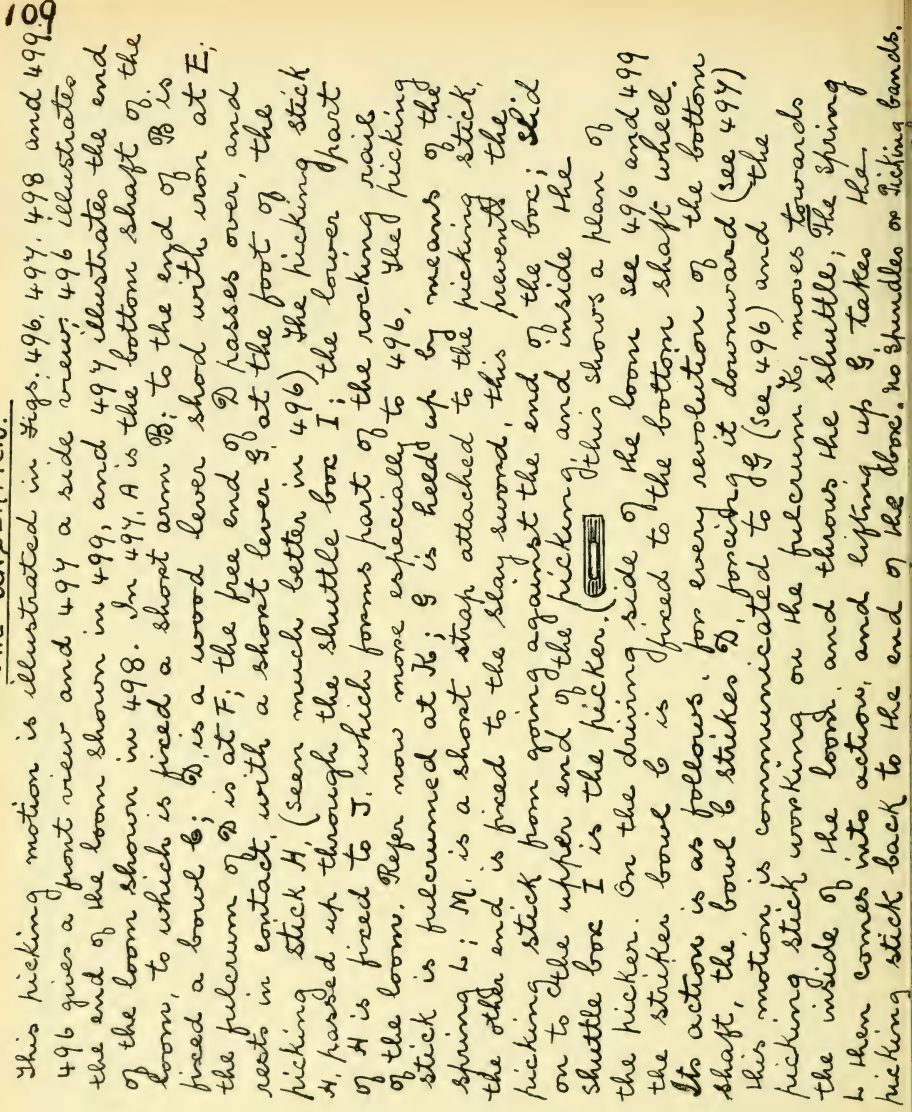 109
This picking motion is illustrated in Figs. 496. 497. 498 and 499.
496 gives a front view and 497 a side view. 496 illustrates
the end of the loom shown in 499, and 497 illustrates the end
of the loom shown in 498. In 497. A is the bottom shaft of the
loom, to which is fixed a short arm B; to the end of B is
fixed a bowl C; D, is a wood lever shod with iron at E;
the fulcrum of D is at F; the free end of D passes over, and
rests in contact, with a short lever G, at the foot of the
picking stick H, (seen much better in 496) The picking stick
H, passed up through the shuttle box I; the lower part
of H is fixed to J. which forms part of the rocking rail
of the loom. Refer now more especially to 496. The picking
stick is fulcrumed at K; G is held up by means of the
spring L; M, is a short strap attached to the picking stick,
the other end is fixed to the slay sword, this prevents the
picking stick from going against the end of the box; slid
on to the upper end of the picking, and inside the
shuttle box I is the picker. (this shows a plan of
the picker. On the driving side of the loom see 496 and 499
the striker bowl C is fixed to the bottom shaft wheel.
Its action is as follows, for every revolution of the bottom
shaft, the bowl C strikes D, forcing it downward (see 497)
this motion is communicated to G (see 496) and the
picking stick working on the fulcrum K, moves towards
the inside of the loom and throws the shuttle; The spring
L then comes into action, and lifting up G takes the
picking stick back to the end of the box. No spindles or picking bands.